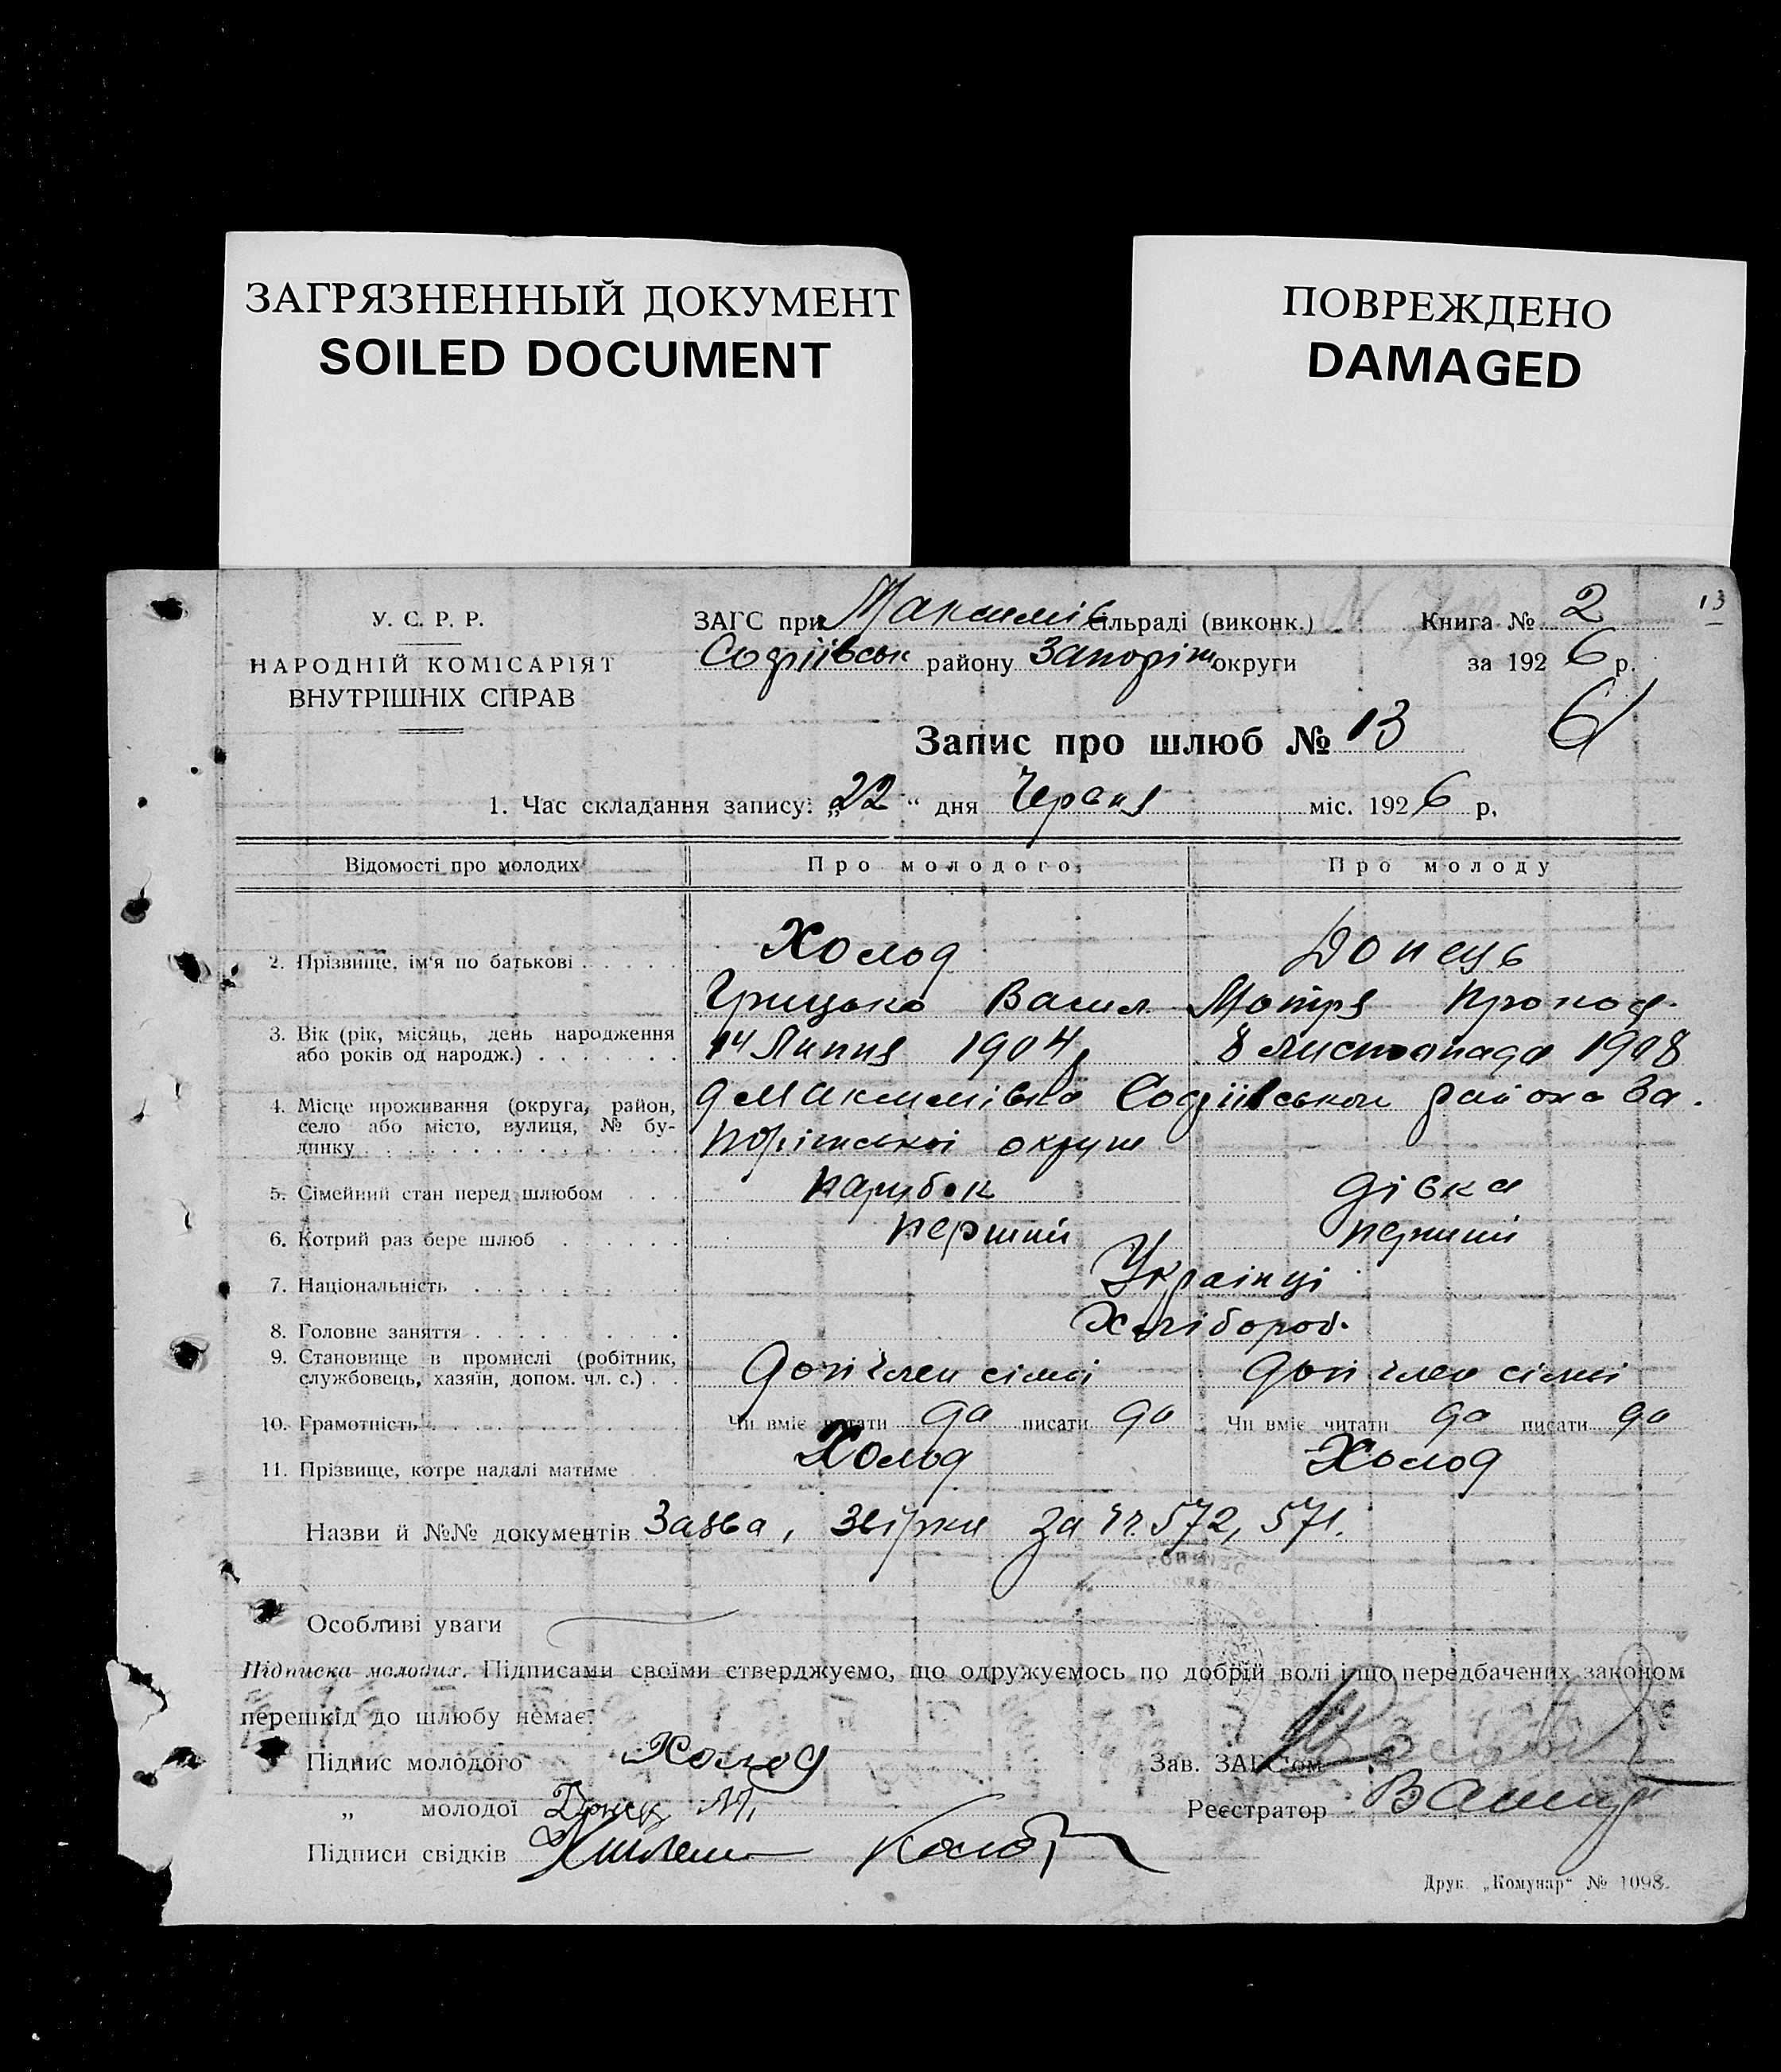 ЗАГРЯЗНЕННЫЙ ДОКУМЕНТ
SOILED DOCUMENT
ПОВРЕЖДЕНО
DAMAGED
13
У. С. Р. Р.
НАРОДНІЙ КОМІСАРІЯТ
ВНУТРІШНІХ СПРАВ
ЗАГС при Максимів сільраді (виконк.) Книга № 2
Софіївськ району Запоріж округи за 1926 р.
Запис про шлюб № 13
1. Час складання запису: „22“ дня Червня міс. 1926 р.
Відомості про молодих Про молодого Про молоду
2. Прізвище, ім'я по батькові Холод Донець
Грицько Васил. Мотря Прокоф.
3. Вік (рік, місяць, день народження або років од народж.) 14 Липня 1904 8 листопада 1908
4. Місце проживання (округа, район, Максимівка Софіївськой района За.
село або місто, вулиця, № бу- поріжської округи
динку
5. Сімейний стан перед шлюбом парубок дівка
6. Котрий раз бере шлюб перший перший
7. Національність Українці
8. Головне заняття Хлібороб.
9. Становище в промислі (робітник, службовець, хазяїн, допом. чл. с.) доп член сімї доп член сімї
10. Грамотність Чи вміє читати да писати да Чи вміє читати да писати да
11. Прізвище, котре надалі матиме Холод Холод
Назви й №№ документів Заява, за 572, 571.
Особливі уваги
Підписка молодих. Підписами своїми стверджуємо, що одружуємось по добрій волі і що передбачених законом
перешкід до шлюбу немає.
Підпис молодого Холод Зав. ЗАГС'ом
„ молодої Донец М. Реєстратор
Підписи свідків
Друк. „Комунар“ № 1098.